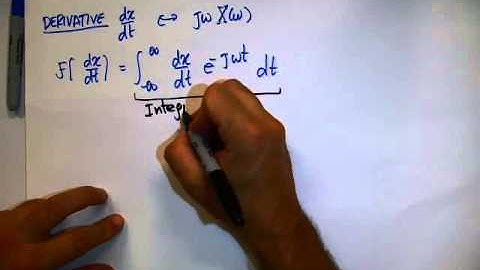 DERIVATIVE dx/dt ↔ jω X(ω)
F{dx/dt} = ∫_{-∞}^{∞} dx/dt e^{-jωt} dt
Integ